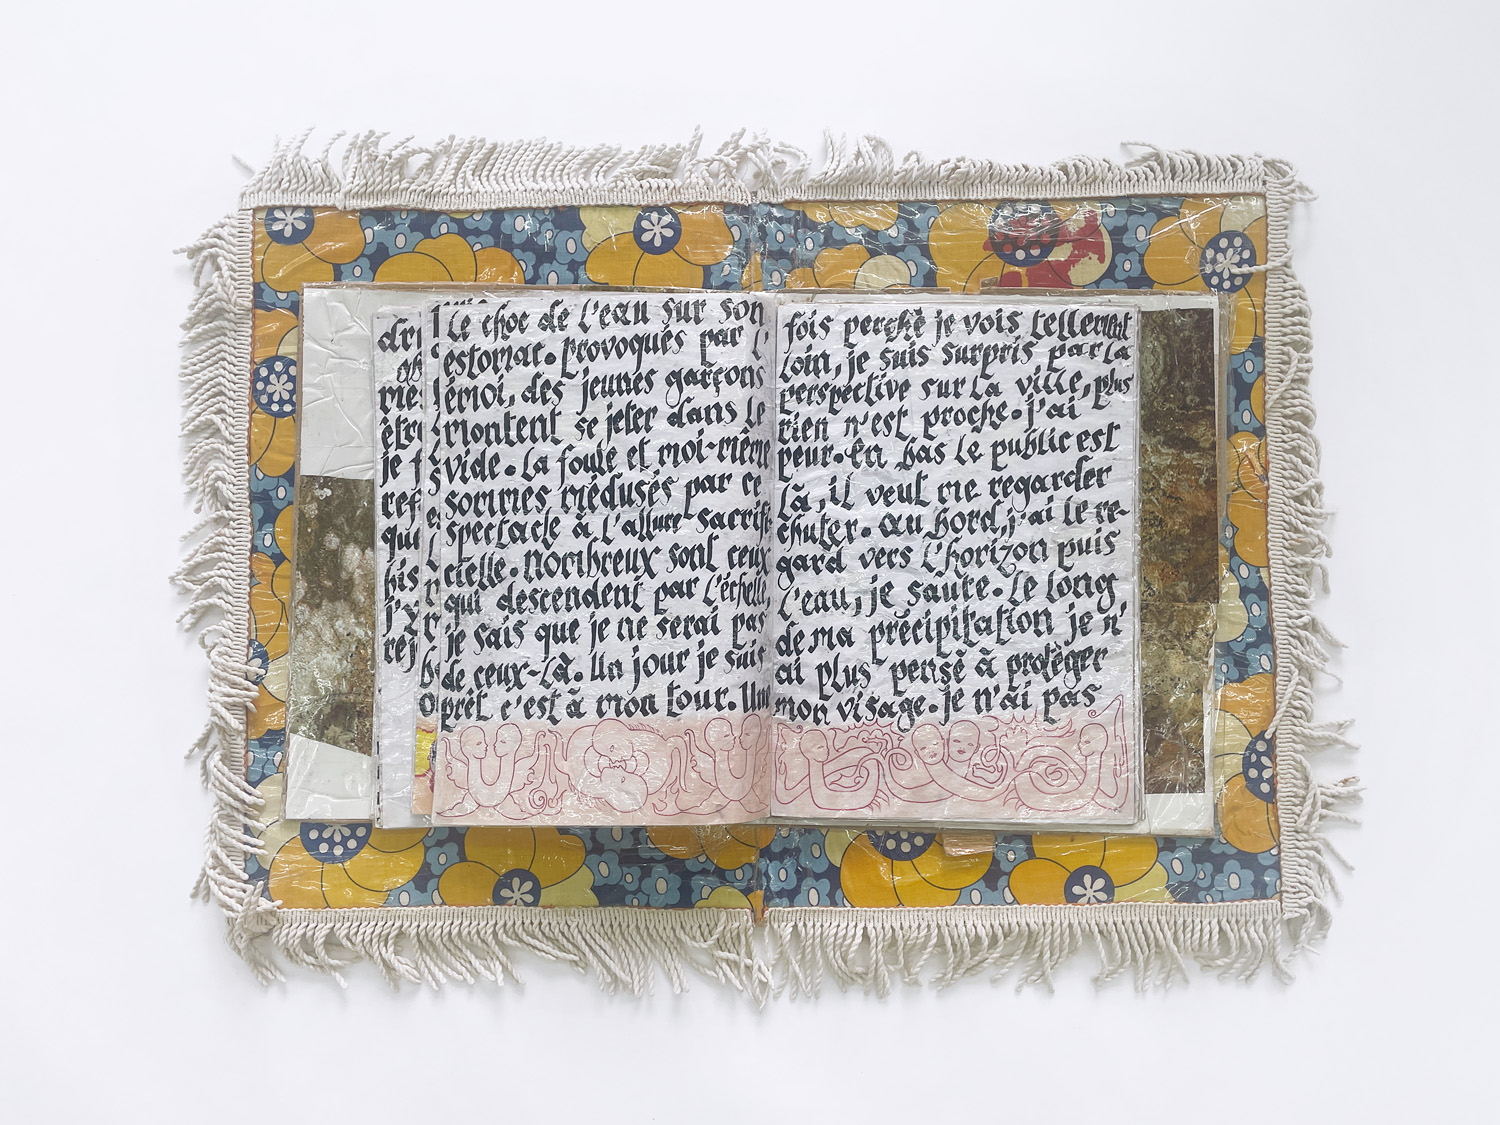 dr
me
être
je f
ref
que
bis
j'y
rej
Le choc de l'eau sur son
estomac. provoqués par l'
émoi, des jeunes garçons
montent se jeter dans le
vide. La foule et moi-même
sommes médusés par ce
spectacle à l'allure sacrifi-
cielle. Nombreux sont ceux
qui descendent par l'échelle,
je sais que je ne serai pas
de ceux-là. Un jour je suis
prêt c'est à mon tour. Une
fois perché je vois tellement
loin, je suis surpris par la
perspective sur la ville, plus
rien n'est proche. j'ai
peur. En bas le public est
là, il veut me regarder
chuter. Au bord, j'ai le re-
gard vers l'horizon puis
l'eau, je saute. Le long
de ma précipitation je n'
ai plus pensé à protéger
mon visage. je n'ai pas